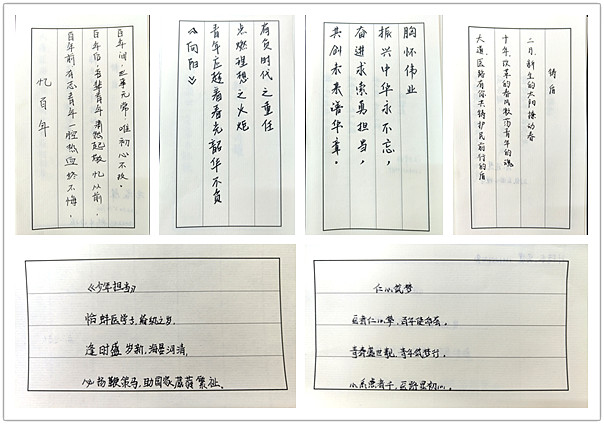 忆百年
百年前,有志青年一腔热血终不悔。
百年后,吾辈青年肃然起敬,忆以前。
百年间,世事无常,唯初心不改。
《向阳》
青年医趁着春光韶华不负
点燃理想之火炬
肩负时代之重任
胸怀伟业
振兴中华永不忘,
奋进求索勇担当,
共创未来谱华章。
铸盾
二月,新生的太阳拂动春
十年,改革的春风吹荡青年的魂
大道医路有你共铸护民前行的盾
《少年担当》
恰 医学子,最韧之身,
逢时盛 岁新,海晏河清,
必扬鞭策马,助国家 繁祉.
仁心筑梦
医者仁心擎,百年使命萦。
青春盛世靓,青年筑梦行.
心系患者千,医路显初心。